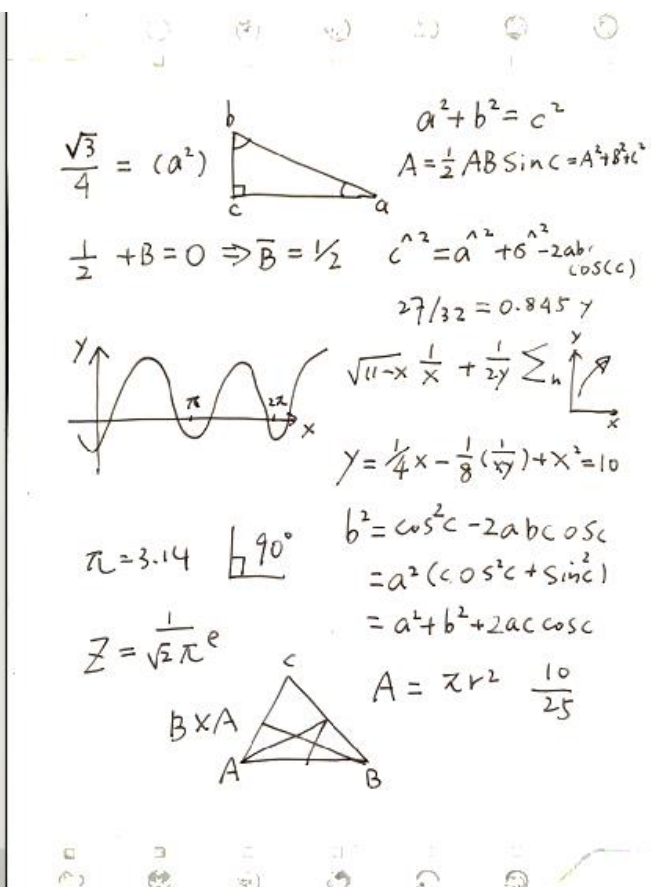 b
√3/4 = (a²)
c
a
a² + b² = c²
A = ½ AB Sin C = A² + B² + C²
1/2 + B = 0 ⇒ B̅ = 1/2
c^2 = a^2 + 6^2 - 2ab.
cos(c)
27/32 = 0.845 y
y
π
2π
x
√11-x 1/x + 1/2y Σn
y
x
y = 1/4 x - 1/8 (1/xy) + x² = 10
π = 3.14
90°
b² = cos²c - 2abcosc
= a² (cos²c + sin²c)
= a² + b² + 2ac cosc
Z = 1/√2π e
A = πr²
10/25
B x A
C
A
B